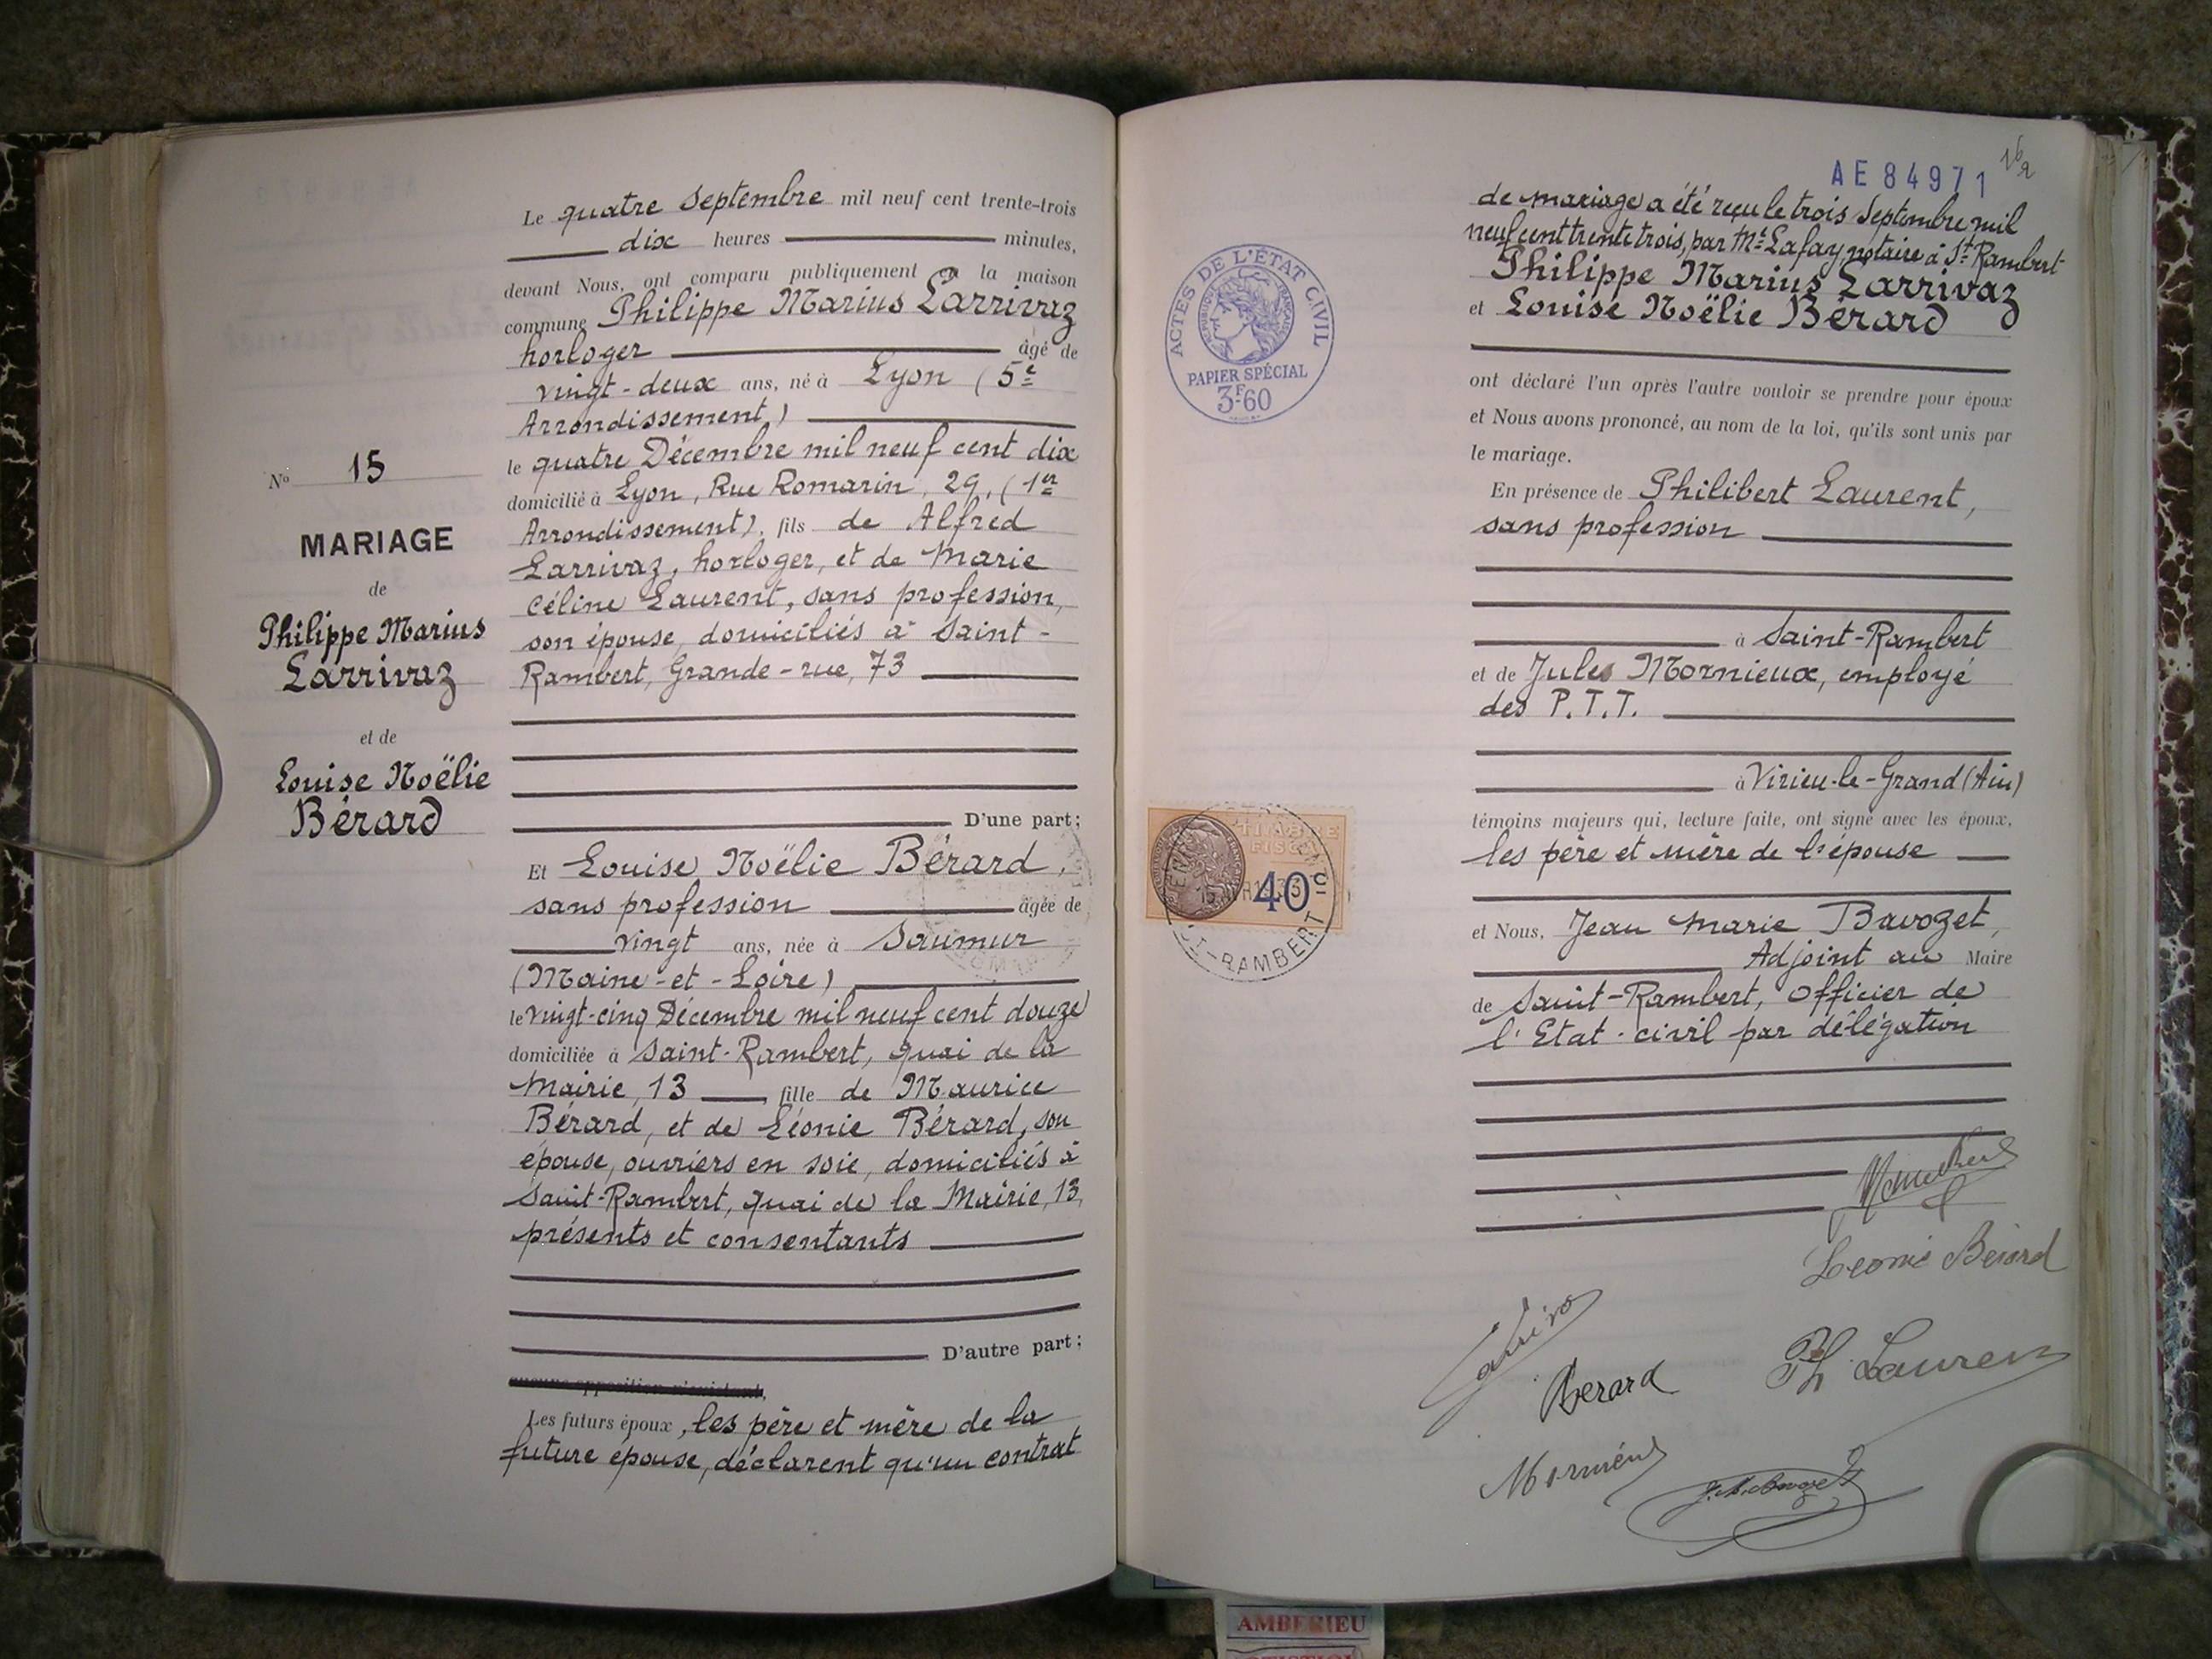 Le quatre Septembre mil neuf cent trente-trois
dix heures minutes,
devant Nous, ont comparu publiquement en la maison
commune Philippe Marius Larrivaz
horloger âgé de
vingt-deux ans, né à Lyon (5e
Arrondissement)
le quatre Décembre mil neuf cent dix
domicilié à Lyon, Rue Romarin, 29, (1er
Arrondissement), fils de Alfred
Larrivaz, horloger, et de Marie
Céline Laurent, sans profession,
son épouse, domiciliés à Saint-
Rambert, Grande-rue, 73
D'une part;
Et Louise Noëlie Bérard,
sans profession âgée de
vingt ans, née à Saumur
(Maine-et-Loire)
le vingt-cinq Décembre mil neuf cent douze
domiciliée à Saint-Rambert, quai de la
Mairie, 13, fille de Maurice
Bérard, et de Léonie Bérard, son
épouse, ouvriers en soie, domiciliés à
Saint-Rambert, quai de la Mairie, 13,
présents et consentants
D'autre part;
Les futurs époux, les père et mère de la
future épouse, déclarent qu'un contrat
No 15
MARIAGE
de
Philippe Marius
Larrivaz
et de
Louise Noëlie
Bérard
AE 84971
de mariage a été reçu le trois Septembre mil
neuf cent trente trois, par Me Lafay, notaire à St-Rambert
Philippe Marius Larrivaz
et Louise Noëlie Bérard
ont déclaré l'un après l'autre vouloir se prendre pour époux
et Nous avons prononcé, au nom de la loi, qu'ils sont unis par
le mariage.
En présence de Philibert Laurent,
sans profession
à Saint-Rambert
et de Jules Mornieux, employé
des P.T.T.
à Virieu-le-Grand (Ain)
témoins majeurs qui, lecture faite, ont signé avec les époux,
les père et mère de l'épouse
et Nous, Jean Marie Bavozet,
Adjoint au Maire
de Saint-Rambert, Officier de
l'Etat-civil par délégation
Leonie Berard
Berard
Ph Laurent
ACTES DE L'ÉTAT CIVIL
RÉPUBLIQUE FRANÇAISE
PAPIER SPÉCIAL
3F60
TIMBRE
FISCAL
40c
ST-RAMBERT
AMBERIEU